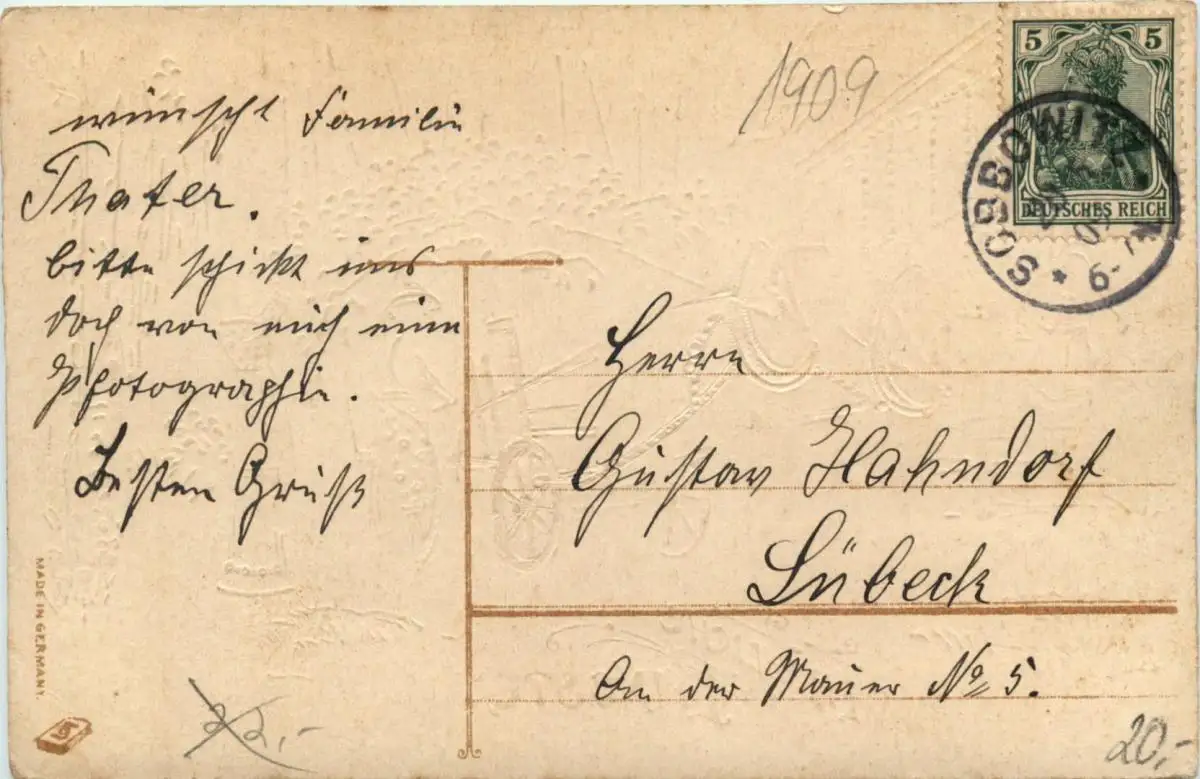 1909
5 5
DEUTSCHES REICH
SOBBOWITZ
09
* 6-7
wünscht Familie
Thater.
bitte schickt uns
doch von euch eine
Pfotographie.
Besten Gruß
Herrn
Gustav Hahndorf
Lübeck
An der Mauer No 5.
MADE IN GERMANY.
22,-
20,-